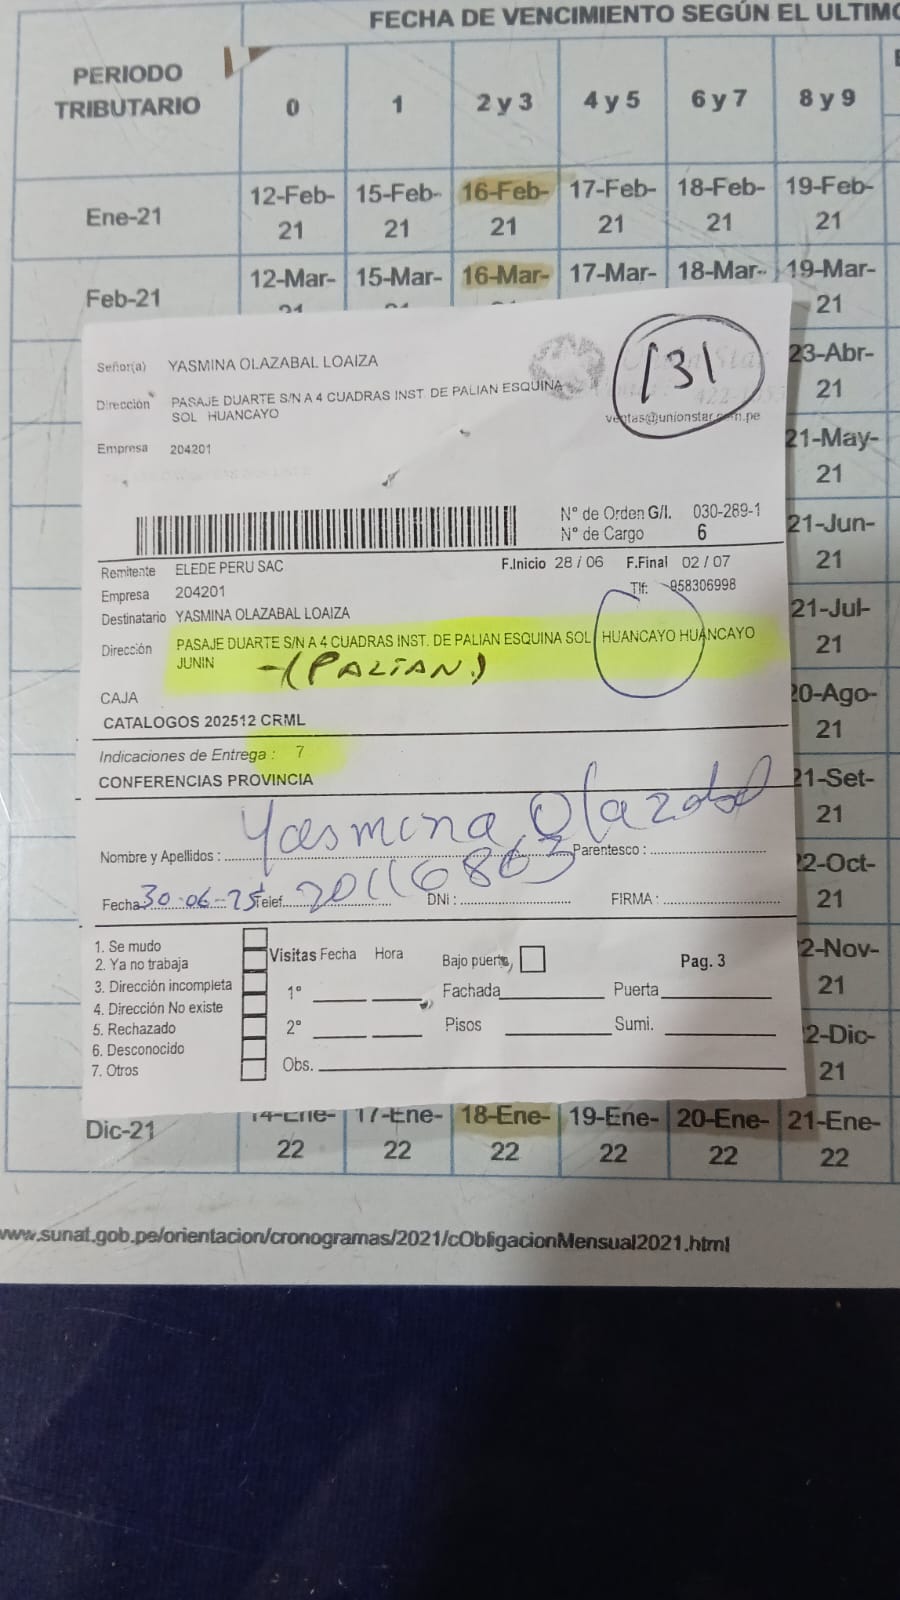 FECHA DE VENCIMIENTO SEGÚN EL ULTIMO
PERIODO TRIBUTARIO 0 1 2 y 3 4 y 5 6 y 7 8 y 9
Ene-21 12-Feb-21 15-Feb-21 16-Feb-21 17-Feb-21 18-Feb-21 19-Feb-21
Feb-21 12-Mar- 15-Mar- 16-Mar- 17-Mar- 18-Mar- 19-Mar-21
23-Abr-21
21-May-21
21-Jun-21
21-Jul-21
20-Ago-21
21-Set-21
22-Oct-21
2-Nov-21
2-Dic-21
Señor(a) YASMINA OLAZABAL LOAIZA
131
Dirección PASAJE DUARTE S/N A 4 CUADRAS INST. DE PALIAN ESQUINA
SOL HUANCAYO
ventas@unionstar.com.pe
Empresa 204201
N° de Orden G/I. 030-289-1
N° de Cargo 6
Remitente ELEDE PERU SAC F.Inicio 28 / 06 F.Final 02 / 07
Empresa 204201 Tlf: 958306998
Destinatario YASMINA OLAZABAL LOAIZA
Dirección PASAJE DUARTE S/N A 4 CUADRAS INST. DE PALIAN ESQUINA SOL HUANCAYO HUANCAYO
JUNIN -(PALIAN)
CAJA
CATALOGOS 202512 CRML
Indicaciones de Entrega : 7
CONFERENCIAS PROVINCIA
Yasmina Olazabal
Nombre y Apellidos : Parentesco :
Fecha 30-06-25 Telef. 20116863 DNi : FIRMA :
1. Se mudo
2. Ya no trabaja
3. Dirección incompleta
4. Dirección No existe
5. Rechazado
6. Desconocido
7. Otros
Visitas Fecha Hora Bajo puerta Pag. 3
1° Fachada Puerta
2° Pisos Sumi.
Obs.
Dic-21 14-Ene-22 17-Ene-22 18-Ene-22 19-Ene-22 20-Ene-22 21-Ene-22
www.sunat.gob.pe/orientacion/cronogramas/2021/cObligacionMensual2021.html